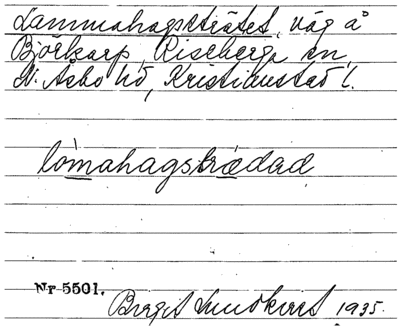 Lammahagsträtet, väg å
Björkarp, Riseberga sn,
N. Åsbo hd, Kristianstad l.
lòmahagstrǽdad
Nr 5501.
Birgit Lundkvist 1935.